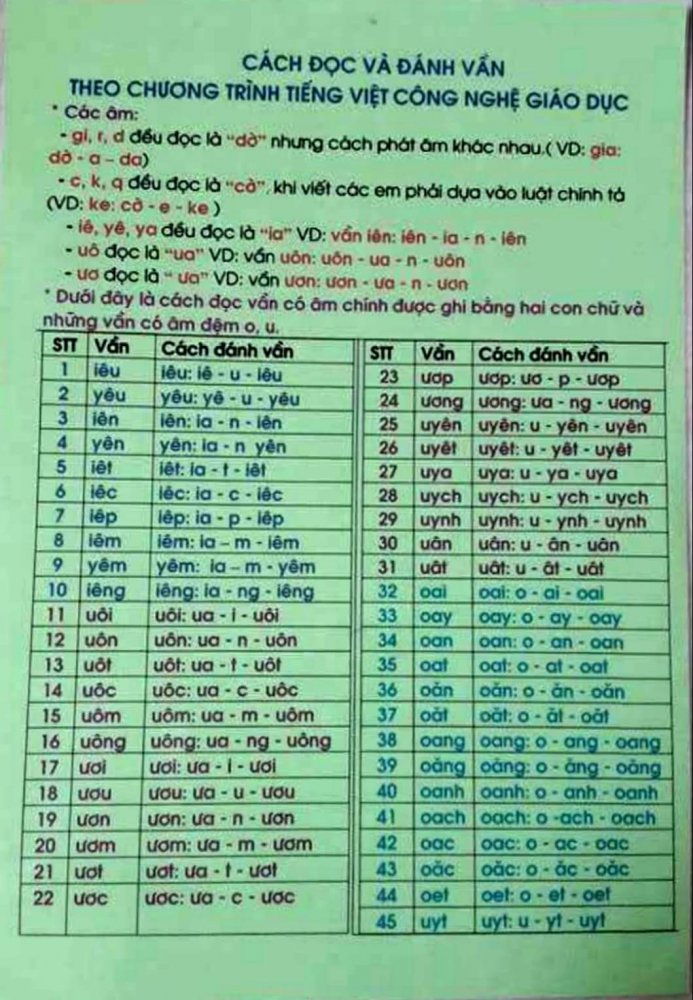 CÁCH ĐỌC VÀ ĐÁNH VẦN
THEO CHƯƠNG TRÌNH TIẾNG VIỆT CÔNG NGHỆ GIÁO DỤC
* Các âm:
- gi, r, d đều đọc là “dờ” nhưng cách phát âm khác nhau.( VD: gia:
dờ - a – da)
- c, k, q đều đọc là “cờ”, khi viết các em phải dựa vào luật chính tả
(VD: ke: cờ - e - ke )
- iê, yê, ya đều đọc là “ia” VD: vần iên: iên - ia - n - iên
- uô đọc là “ua” VD: vần uôn: uôn - ua - n - uôn
- ươ đọc là “ ưa” VD: vần ươn: ươn - ưa - n - ươn
* Dưới đây là cách đọc vần có âm chính được ghi bằng hai con chữ và
những vần có âm đệm o, u.
STT Vần Cách đánh vần
1 iêu iêu: iê - u - iêu
2 yêu yêu: yê - u - yêu
3 iên iên: ia - n - iên
4 yên yên: ia - n yên
5 iêt iêt: ia - t - iêt
6 iêc iêc: ia - c - iêc
7 iêp iêp: ia - p - iêp
8 iêm iêm: ia – m - iêm
9 yêm yêm: ia – m - yêm
10 iêng iêng: ia - ng - iêng
11 uôi uôi: ua - i - uôi
12 uôn uôn: ua - n - uôn
13 uôt uôt: ua - t - uôt
14 uôc uôc: ua - c - uôc
15 uôm uôm: ua - m - uôm
16 uông uông: ua - ng - uông
17 ươi ươi: ưa - i - ươi
18 ươu ươu: ưa - u - ươu
19 ươn ươn: ưa - n - ươn
20 ươm ươm: ưa - m - ươm
21 ươt ươt: ưa - t - ươt
22 ươc ươc: ưa - c - ươc
STT Vần Cách đánh vần
23 ươp ươp: ươ - p - ươp
24 ương ương: ưa - ng - ương
25 uyên uyên: u - yên - uyên
26 uyêt uyêt: u - yêt - uyêt
27 uya uya: u - ya - uya
28 uych uych: u - ych - uych
29 uynh uynh: u - ynh - uynh
30 uân uân: u - ân - uân
31 uât uât: u - ât - uât
32 oai oai: o - ai - oai
33 oay oay: o - ay - oay
34 oan oan: o - an - oan
35 oat oat: o - at - oat
36 oăn oăn: o - ăn - oăn
37 oăt oăt: o - ăt - oăt
38 oang oang: o - ang - oang
39 oăng oăng: o - ăng - oăng
40 oanh oanh: o - anh - oanh
41 oach oach: o -ach - oach
42 oac oac: o - ac - oac
43 oăc oăc: o - ăc - oăc
44 oet oet: o - et - oet
45 uyt uyt: u - yt - uyt